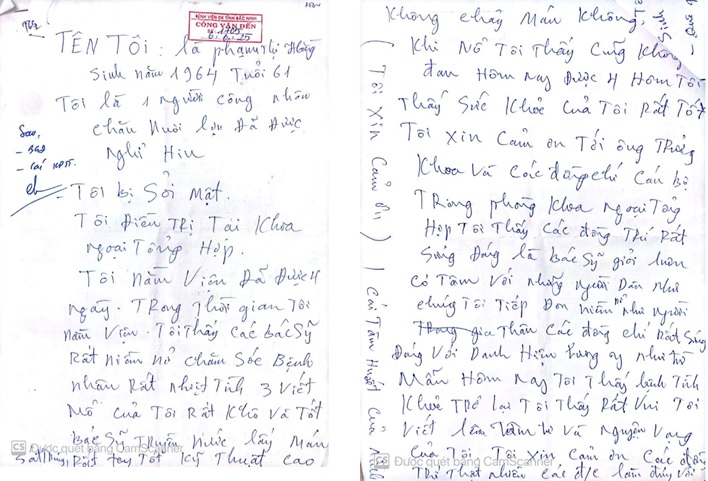 BỆNH VIỆN ĐK TỈNH BẮC NINH
CÔNG VĂN ĐẾN
TÊN TÔI: là phạm thị
Sinh năm 1964 Tuổi 61
Tôi là 1 người công nhân
chăn nuôi lợn Đã Được
Nghỉ Hiu
Sao:
- BGĐ
- Tôi bị Sỏi Mật.
Tôi Điều Trị Tại Khoa
Ngoại Tổng Hợp.
Tôi Nằm Viện Đã Được 4
ngày. Trong thời gian Tôi
Nằm Viện. Tôi Thấy các Bác Sỹ
Rất niềm nở chăm Sóc Bệnh
nhân Rất nhiệt Tình 3 Viết
Mổ của Tôi Rất Khô Và Tốt
Bác Sỹ Truyền Nước lấy Máu
Rất tay Tốt Kỹ Thuật cao
CS Được quét bằng CamScanner
Không chảy Máu Không
Khi Mổ Tôi Thấy Cũng Không
đau Hôm nay Được 4 Hôm Tôi
Thấy Sức Khỏe Của Tôi Rất Tốt
Tôi Xin Cảm ơn Tới ông Trưởng
Khoa Và Các đồng chí Cán bộ
Trong phòng Khoa Ngoại Tổng
Hợp Tôi Thấy Các đồng Trí Rất
Sứng Đáng là Bác Sỹ giỏi luôn
có Tâm Với những người Dân như
chúng Tôi Tiếp Đón niềm nở như người
Thân Các đồng chí Rất Sứng
Đáng Với Danh Hiệu lương y như từ
Mẫu Hôm Nay Tôi Thấy bình Tĩnh
Khỏe Trở lại Tôi Thấy Rất Vui Tôi
Viết lên Tâm tư Và Nguyện Vọng
Của Tôi Tôi Xin Cảm ơn Các đồng
Trí Thật nhiều Các đ/c làm đúng Với
CS Được quét bằng CamScanner
(Tôi Xin Cảm ơn)
cái Tâm Huyết Của